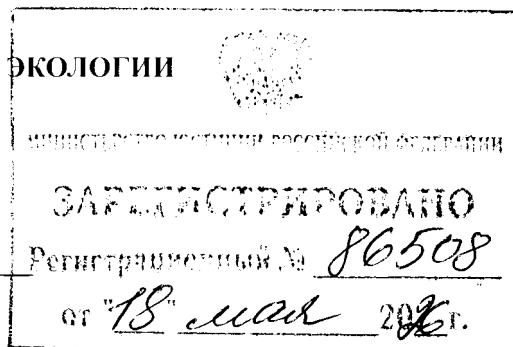 ЭКОЛОГИИ
МИНИСТЕРСТВО ЮСТИЦИИ РОССИЙСКОЙ ФЕДЕРАЦИИ
ЗАРЕГИСТРИРОВАНО
Регистрационный № 86508
от "18" мая 2026 г.